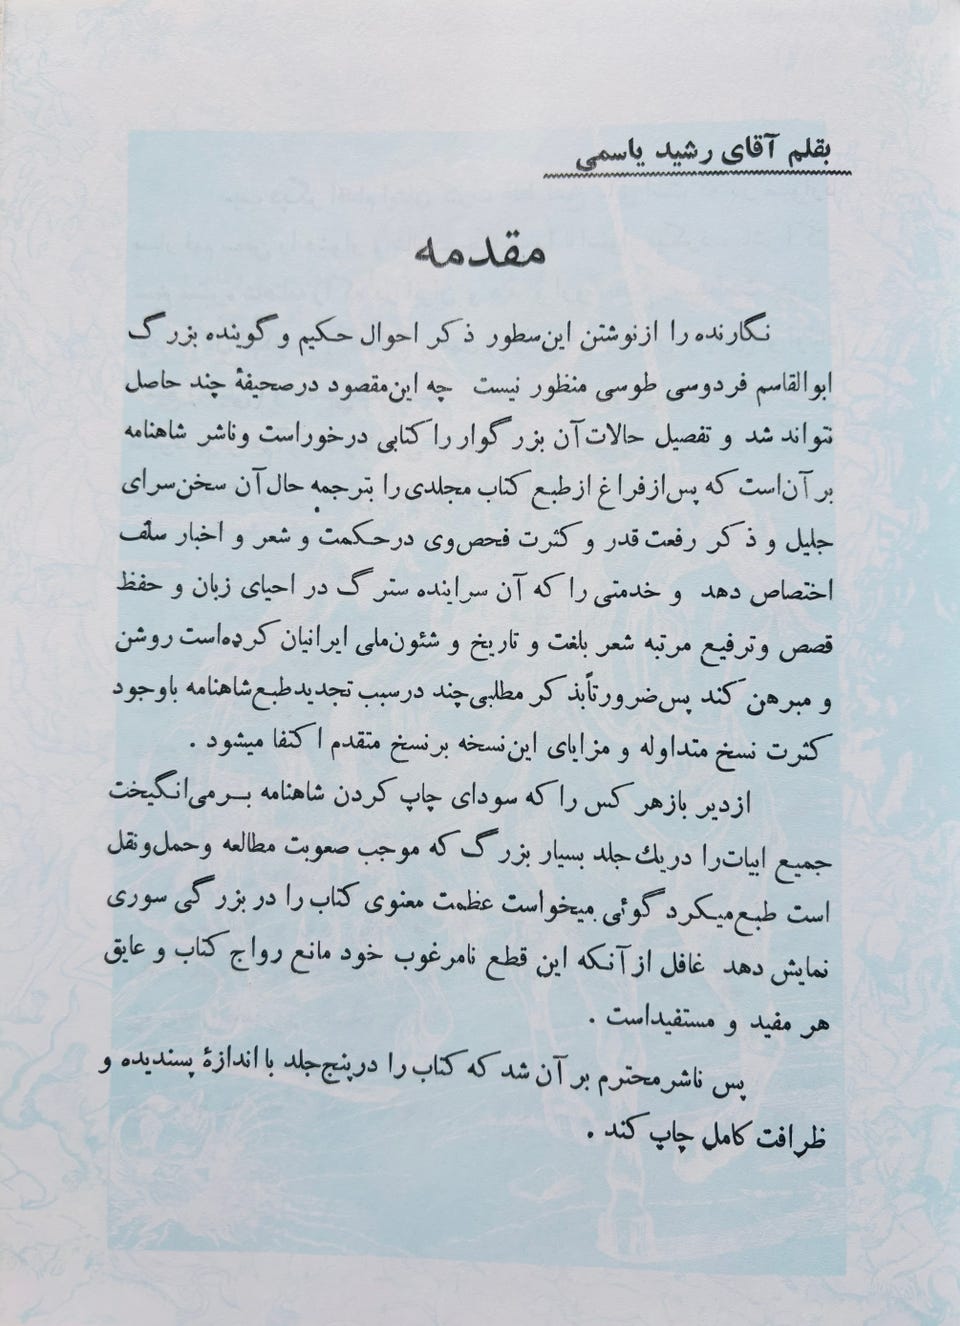 بقلم آقای رشید یاسمی
مقدمه
نگارنده را ازنوشتن این‌سطور ذکر احوال حکیم و گوینده بزرگ
ابوالقاسم فردوسی طوسی منظور نیست چه این‌مقصود درصحیفهٔ چند حاصل
نتواند شد و تفصیل حالات‌آن بزرگوار را کتابی درخوراست وناشر شاهنامه
برآن‌است که پس‌ازفراغ ازطبع کتاب مجلدی را بترجمه حال‌آن سخن‌سرای
جلیل و ذکر رفعت قدر و کثرت فحص‌وی درحکمت و شعر و اخبار سلف
اختصاص دهد و خدمتی را که آن سراینده سترگ در احیای زبان و حفظ
قصص وترفیع مرتبه شعر بلغت و تاریخ و شئون‌ملی ایرانیان کرده‌است روشن
و مبرهن کند پس‌ضرورتاًبذکر مطلبی‌چند درسبب تجدیدطبع‌شاهنامه باوجود
کثرت نسخ متداوله و مزایای این‌نسخه برنسخ متقدم اکتفا میشود .
ازدیر بازهر کس را که سودای چاپ کردن شاهنامه برمی‌انگیخت
جمیع ابیات‌را دریك‌جلد بسیار بزرگ که موجب صعوبت مطالعه وحمل‌ونقل
است طبع‌میکرد گوئی میخواست عظمت معنوی کتاب را در بزرگی سوری
نمایش دهد غافل ازآنکه این قطع نامرغوب خود مانع رواج کتاب و عایق
هر مفید و مستفیداست .
پس ناشرمحترم برآن شد که کتاب را درپنج‌جلد بااندازهٔ پسندیده و
ظرافت کامل چاپ کند .